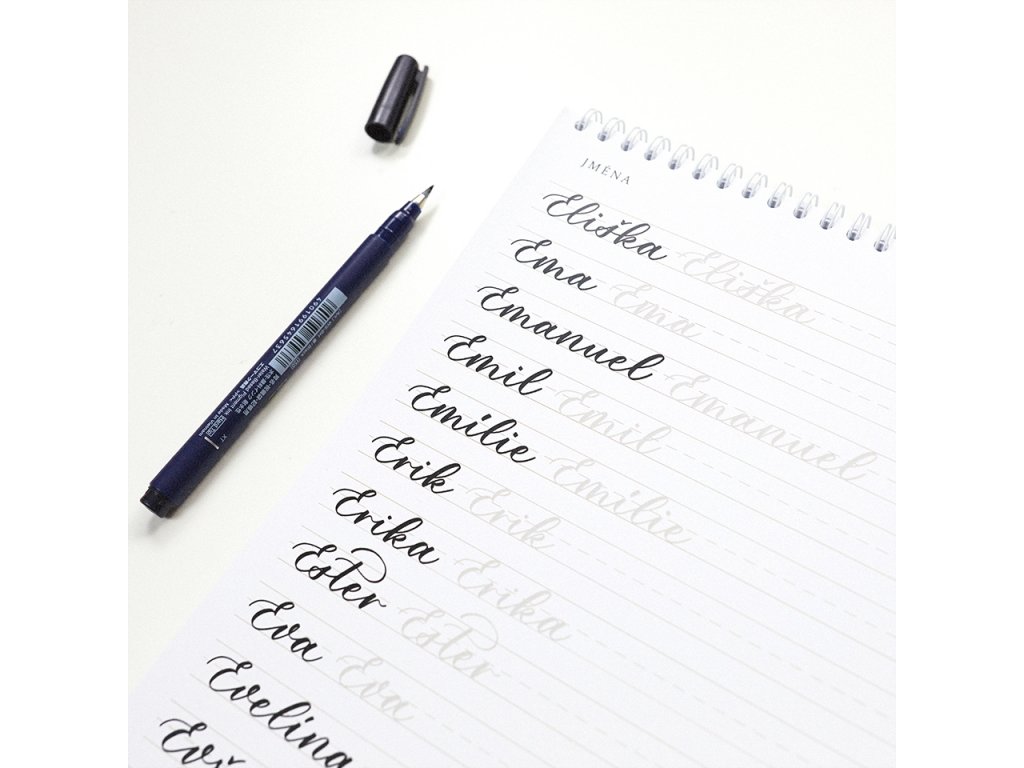 JMÉNA
Eliška Eliška
Ema Ema
Emanuel Emanuel
Emil Emil
Emilie Emilie
Erik Erik
Erika Erika
Ester Ester
Eva Eva
Evelina
4901991645637